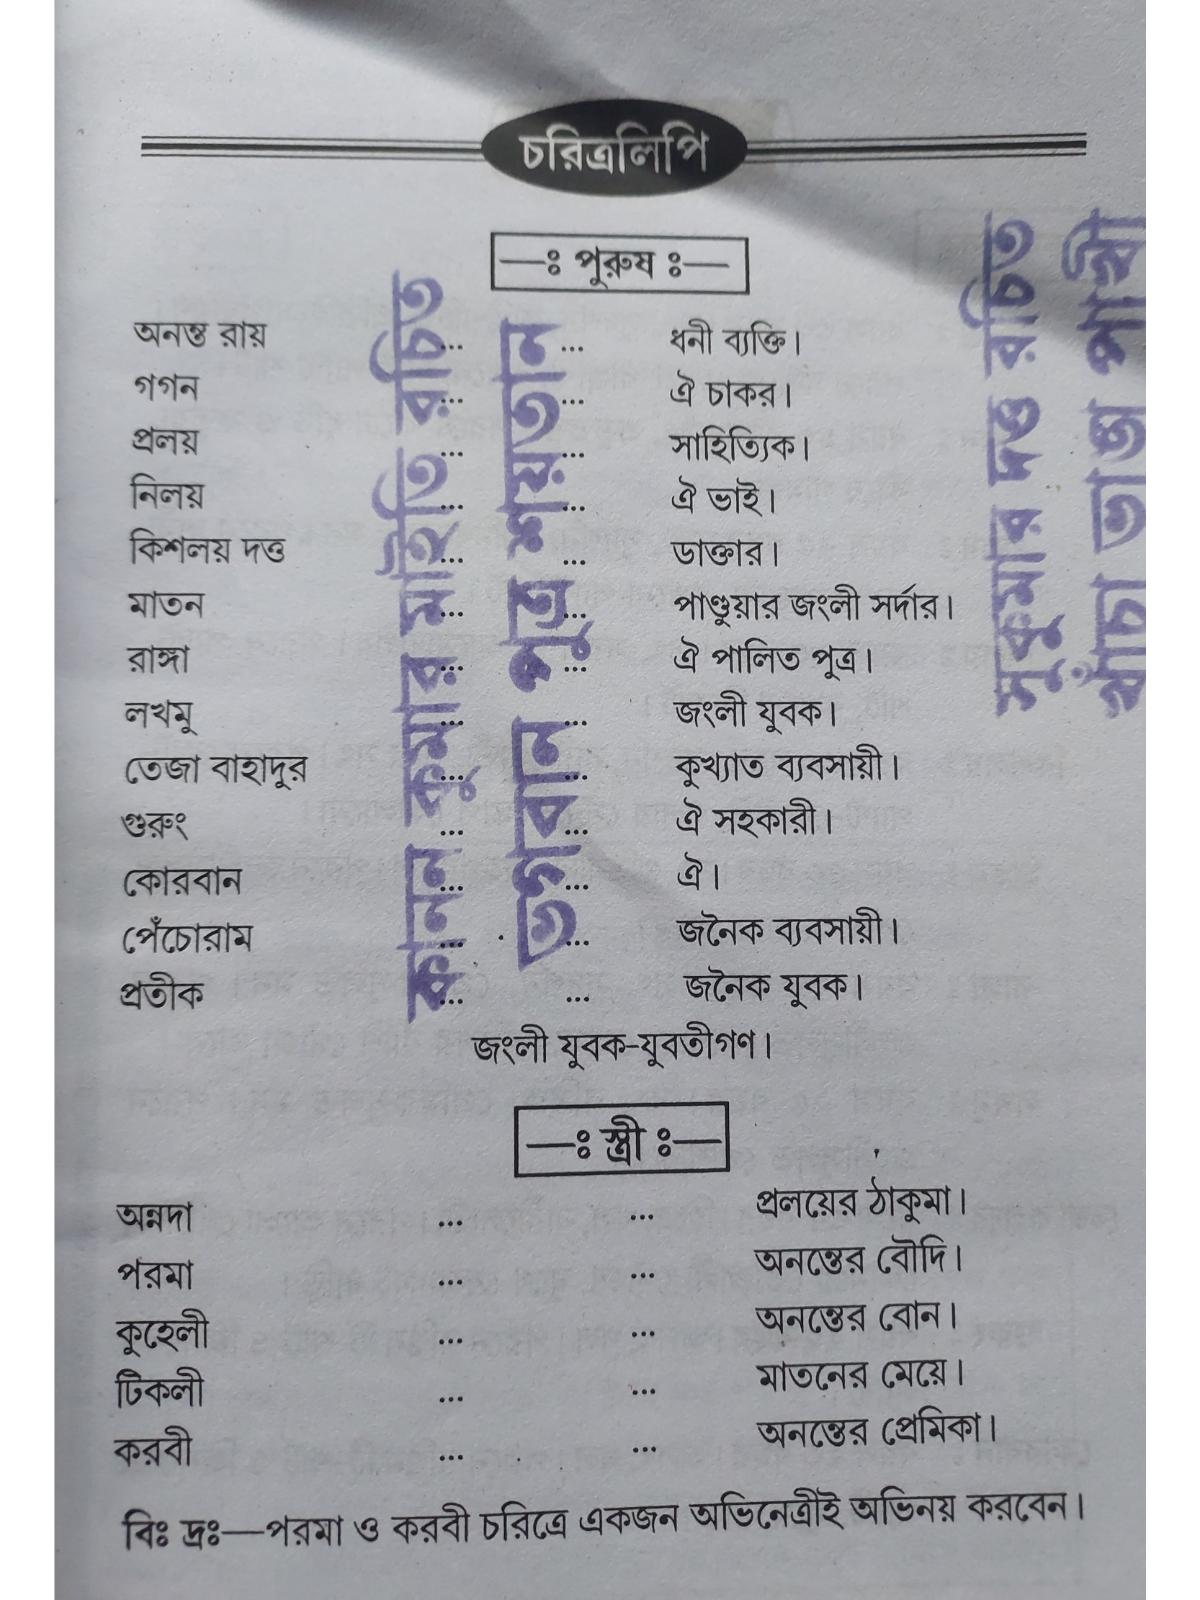 চরিত্রলিপি
—ঃ পুরুষ ঃ—
অনন্ত রায় ... ... ধনী ব্যক্তি।
গগন ... ... ঐ চাকর।
প্রলয় ... ... সাহিত্যিক।
নিলয় ... ... ঐ ভাই।
কিশলয় দত্ত ... ... ডাক্তার।
মাতন ... ... পাণ্ডুয়ার জংলী সর্দার।
রাঙ্গা ... ... ঐ পালিত পুত্র।
লখমু ... ... জংলী যুবক।
তেজা বাহাদুর ... ... কুখ্যাত ব্যবসায়ী।
গুরুং ... ... ঐ সহকারী।
কোরবান ... ... ঐ।
পেঁচোরাম ... ... জনৈক ব্যবসায়ী।
প্রতীক ... ... জনৈক যুবক।
জংলী যুবক-যুবতীগণ।
—ঃ স্ত্রী ঃ—
অন্নদা ... ... প্রলয়ের ঠাকুমা।
পরমা ... ... অনন্তের বৌদি।
কুহেলী ... ... অনন্তের বোন।
টিকলী ... ... মাতনের মেয়ে।
করবী ... ... অনন্তের প্রেমিকা।
বিঃ দ্রঃ—পরমা ও করবী চরিত্রে একজন অভিনেত্রীই অভিনয় করবেন।
কানন কুমার মাইতি রচিত
ভগবান পুত্র শয়তান
সুকুমার দত্ত রচিত
খাঁচা ভাঙা পাখী